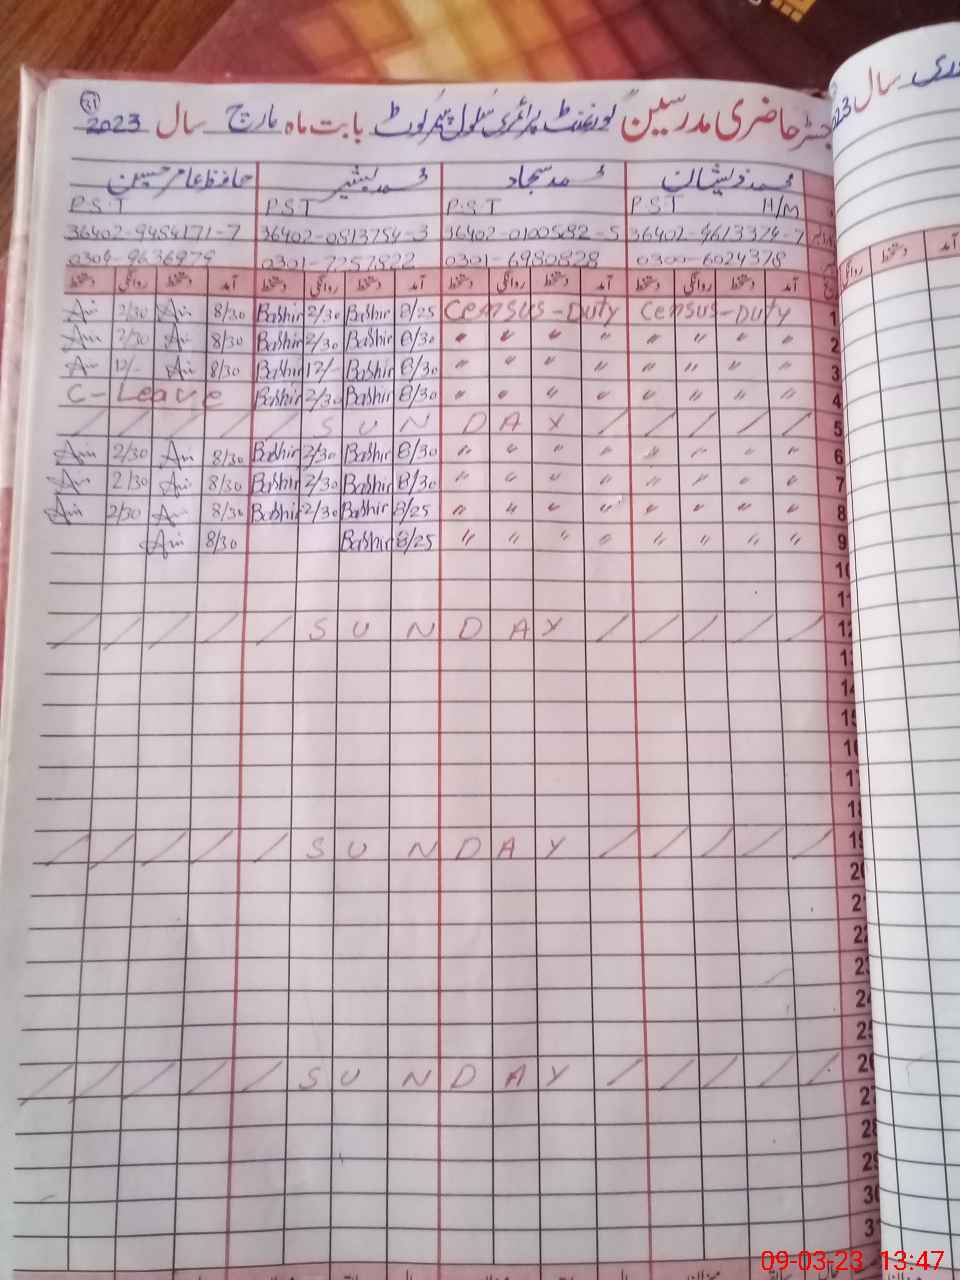 31
رجسٹر حاضری مدرسین گورنمنٹ پرائمری سکول بابت ماہ مارچ سال 2023
محمد ذیشان محمد سجاد محمد بشیر حافظ عامر حسین
P.S.T H/M P.S.T P.S.T P.S.T
36402-4613374-7 36402-0100582-5 36402-0813754-3 36402-9484171-7
0300-6024378 0301-6980828 0301-7257822
آمد دستخط روانگی دستخط آمد دستخط روانگی دستخط آمد دستخط روانگی دستخط آمد دستخط روانگی دستخط
1 Census-Duty Census-Duty 8/25 Bashir 2/30 Bashir 8/30 2/30
2 〃 〃 〃 〃 〃 〃 〃 〃 8/30 Bashir 2/30 Bashir 8/30 2/30
3 〃 〃 〃 〃 〃 〃 〃 〃 8/30 Bashir 12/- Bashir 8/30 12/-
4 〃 〃 〃 〃 〃 〃 〃 〃 8/30 Bashir 2/30 Bashir C-Leave
5 SUNDAY
6 〃 〃 〃 〃 〃 〃 〃 〃 8/30 Bashir 2/30 Bashir 8/30 2/30
7 〃 〃 〃 〃 〃 〃 〃 〃 8/30 Bashir 2/30 Bashir 8/30 2/30
8 〃 〃 〃 〃 〃 〃 〃 〃 8/25 Bashir 2/30 Bashir 8/30 2/30
9 〃 〃 〃 〃 〃 〃 〃 〃 8/25 Bashir 8/30
10
11
12 SUNDAY
13
14
15
16
17
18
19 SUNDAY
20
21
22
23
24
25
26 SUNDAY
27
28
29
30
31
سال
آمد دستخط روانگی
09-03-23 13:47